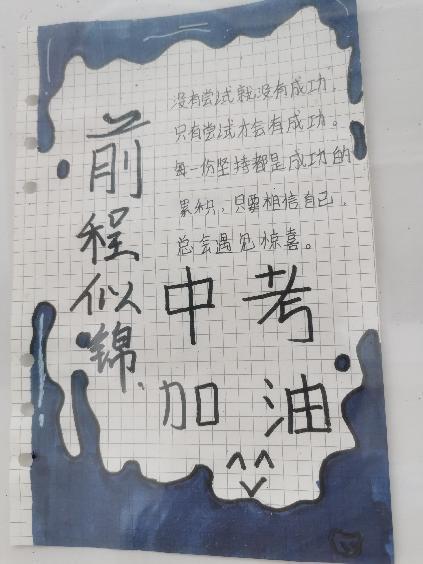 前程似锦
没有尝试就没有成功，
只有尝试才会有成功。
每一份坚持都是成功的
累积，只要相信自己，
总会遇见惊喜。
中考
加油